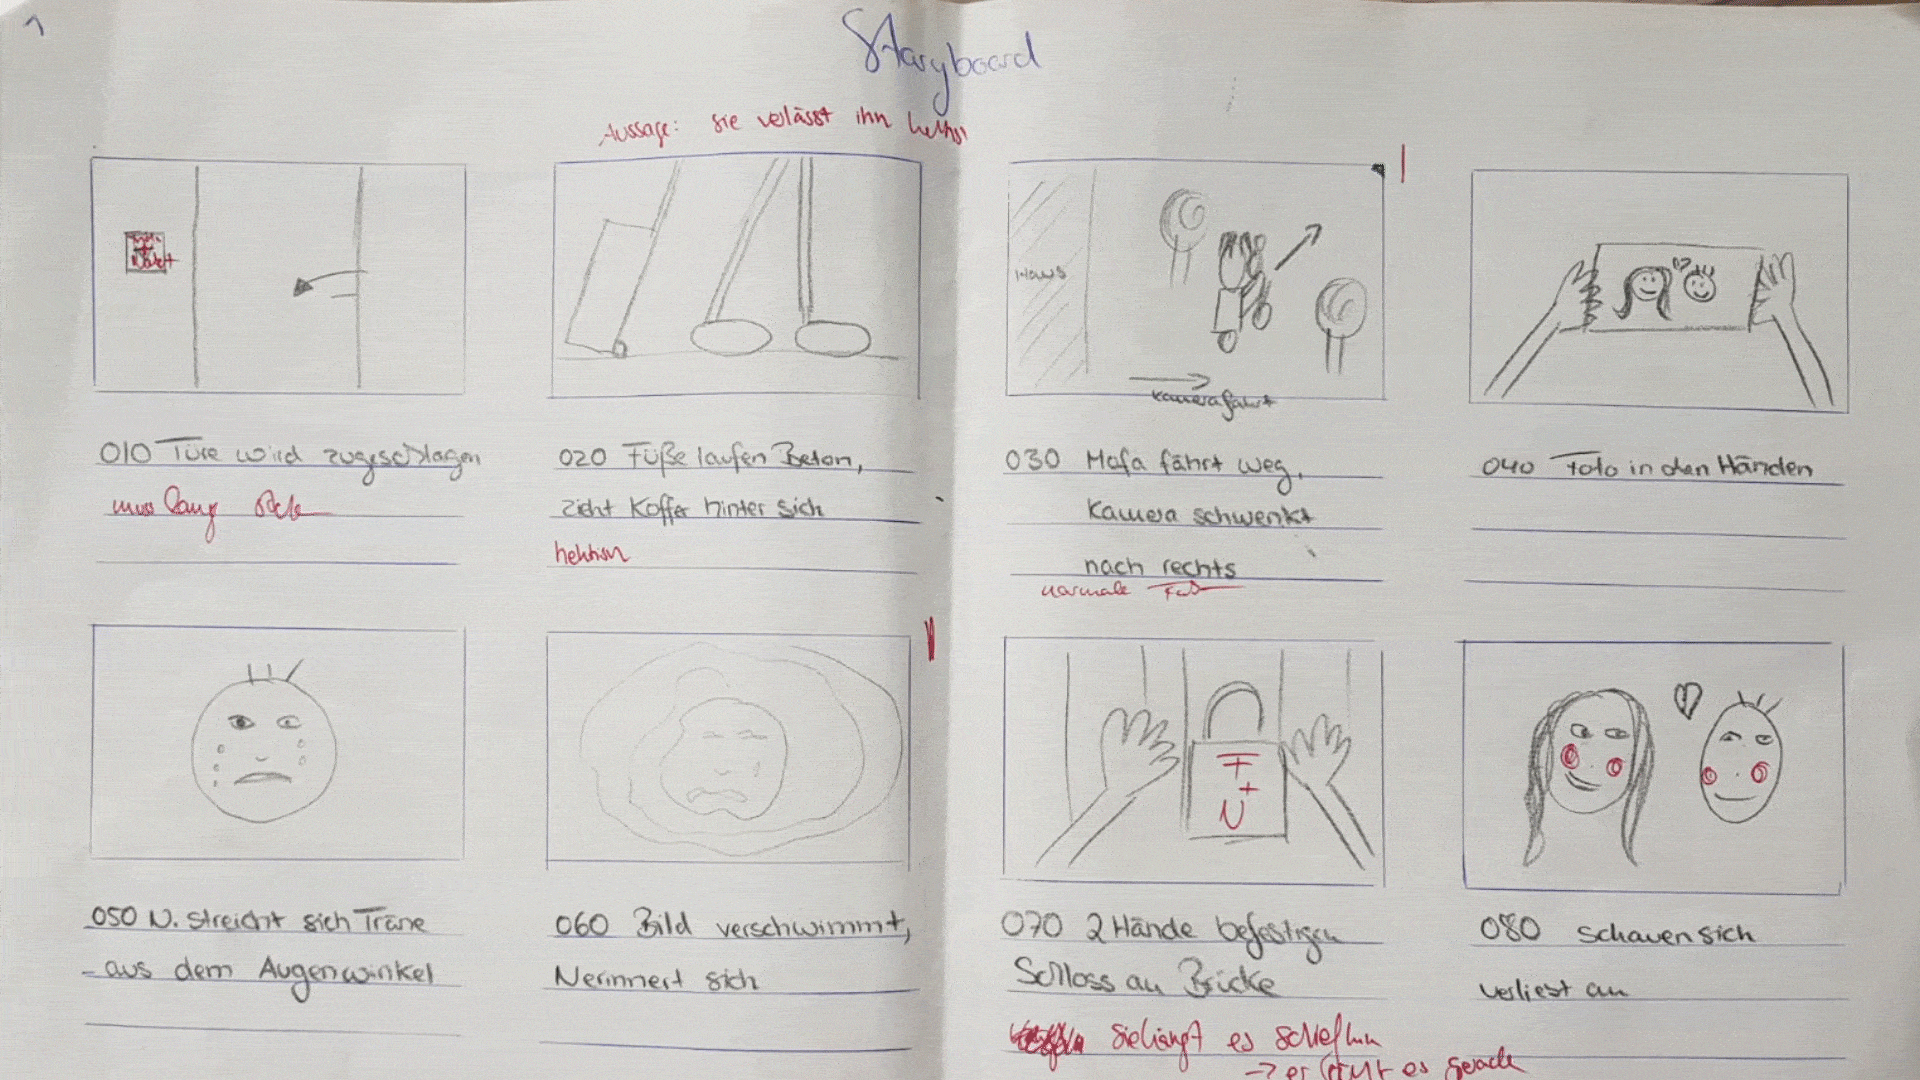 1
Storyboard
Aussage: sie verlässt ihn
010 Türe wird zugeschlagen
020 Füße laufen Beton,
zieht Koffer hinter sich
Haus
Kamerafahrt
030 Mofa fährt weg,
Kamera schwenkt
nach rechts
normale
040 Foto in den Händen
050 N. streicht sich Träne
aus dem Augenwinkel
060 Bild verschwimmt,
N erinnert sich
F
+
N
070 2 Hände befestigen
Schloss an Brücke
sie hängt es schief hin
-> er es gerade
080 schauen sich
verliebt an